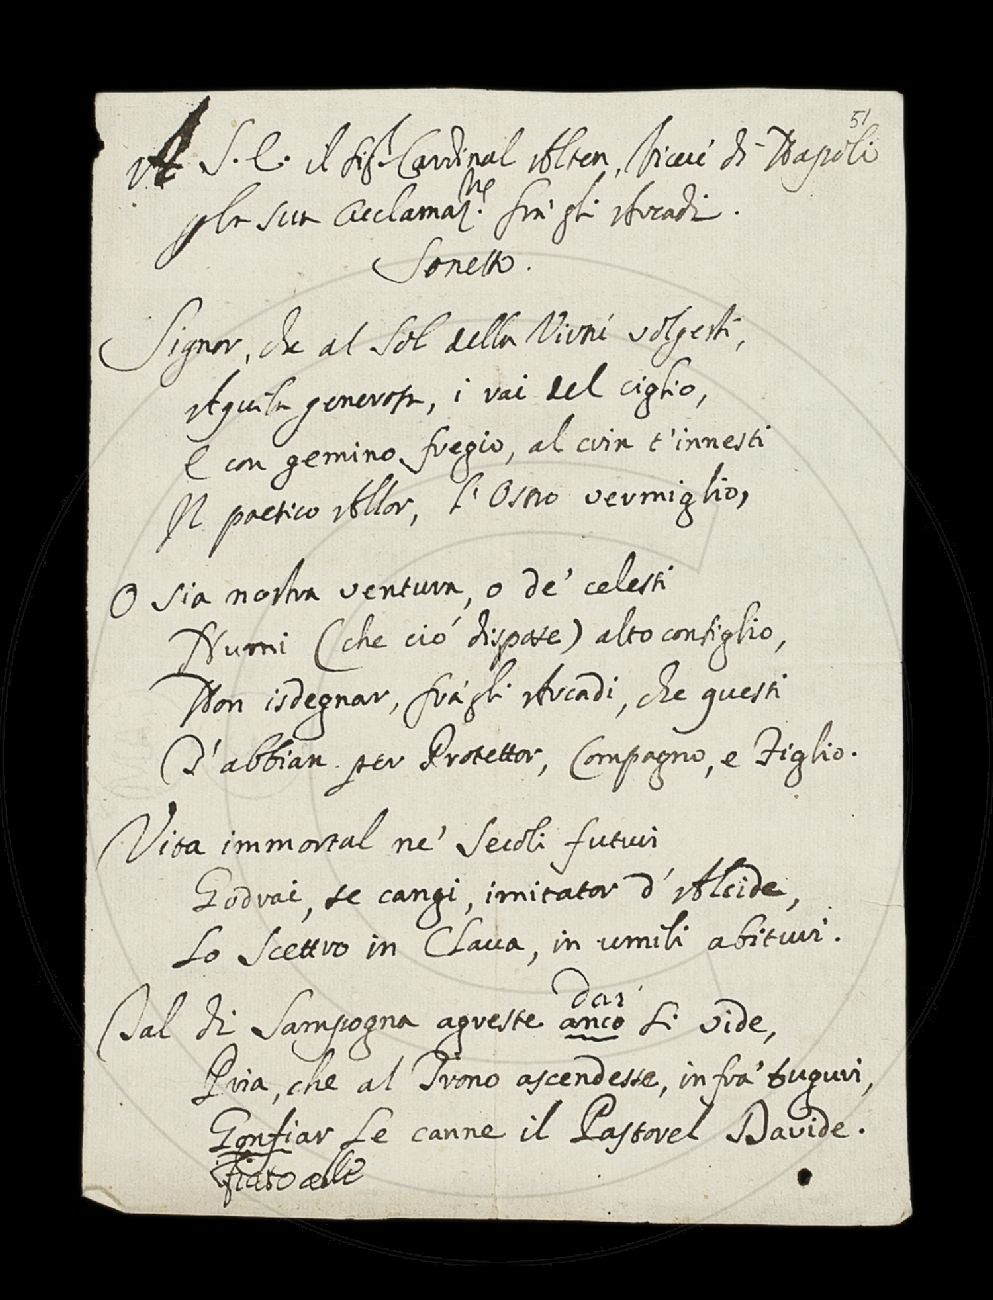 51
A S. E. il Sig.r Cardinal Alten, Viceré di Napoli
p la sua Acclamaz.ne frà gli Arcadi.
Sonetto.
Signor, che al Sol della Virtù volgesti,
Aquila generosa, i rai del ciglio,
E con gemino fregio, al crin t'innesti
Il poetico Allor, l'Ostro vermiglio,
O sia nostra ventura, o de' celesti
Numi (che ciò dispose) alto consiglio,
Non isdegnar, frà gli Arcadi, che questi
T'abbian per Protettor, Compagno, e Figlio.
Vita immortal ne' Secoli futuri
Godrai, se cangi, imitator d'Alcide,
Lo Scettro in Clava, in umili abituri.
dar
Tal di Sampogna agreste anco si vide,
Pria, che al Trono ascendesse, in frà tuguri,
Gonfiar le canne il Pastorel Davide.
fiato alle